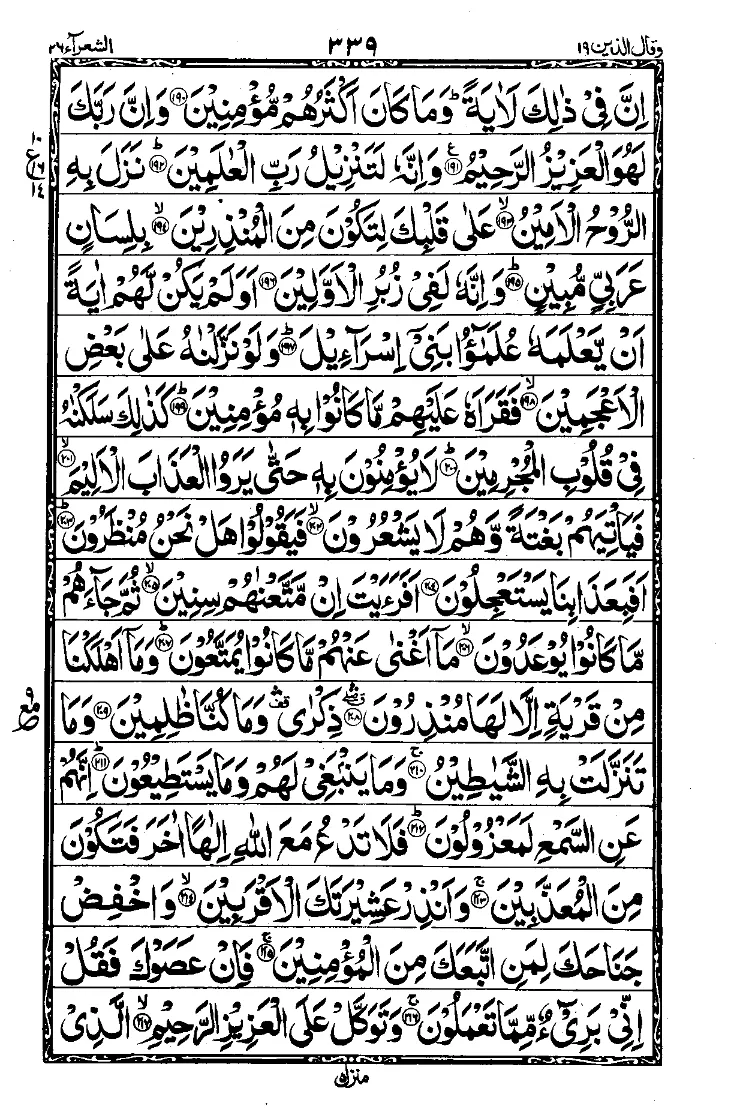 وقال الذين ١٩
٣٣٩
الشعرآء ٢٦
اِنَّ فِيْ ذٰلِكَ لَاٰيَةً ؕ وَمَا كَانَ اَكْثَرُهُمْ مُّؤْمِنِيْنَ ۝۱۹۰ وَاِنَّ رَبَّكَ
لَهُوَ الْعَزِيْزُ الرَّحِيْمُ ۝۱۹۱ؑ وَاِنَّهٗ لَتَنْزِيْلُ رَبِّ الْعٰلَمِيْنَ ۝۱۹۲ؕ نَزَلَ بِهِ
١٠
ع
١٦
١٤
الرُّوْحُ الْاَمِيْنُ ۝۱۹۳ۙ عَلٰى قَلْبِكَ لِتَكُوْنَ مِنَ الْمُنْذِرِيْنَ ۝۱۹۴ۙ بِلِسَانٍ
عَرَبِيٍّ مُّبِيْنٍ ۝۱۹۵ؕ وَاِنَّهٗ لَفِيْ زُبُرِ الْاَوَّلِيْنَ ۝۱۹۶ اَوَلَمْ يَكُنْ لَّهُمْ اٰيَةً
اَنْ يَّعْلَمَهٗ عُلَمٰٓؤُا بَنِيْٓ اِسْرَآءِيْلَ ۝۱۹۷ؕ وَلَوْ نَزَّلْنٰهُ عَلٰى بَعْضِ
الْاَعْجَمِيْنَ ۝۱۹۸ۙ فَقَرَاَهٗ عَلَيْهِمْ مَّا كَانُوْا بِهٖ مُؤْمِنِيْنَ ۝۱۹۹ؕ كَذٰلِكَ سَلَكْنٰهُ
فِيْ قُلُوْبِ الْمُجْرِمِيْنَ ۝۲۰۰ؕ لَا يُؤْمِنُوْنَ بِهٖ حَتّٰى يَرَوُا الْعَذَابَ الْاَلِيْمَ ۝۲۰۱ۙ
فَيَاْتِيَهُمْ بَغْتَةً وَّهُمْ لَا يَشْعُرُوْنَ ۝۲۰۲ۙ فَيَقُوْلُوْا هَلْ نَحْنُ مُنْظَرُوْنَ ۝۲۰۳ؕ
اَفَبِعَذَابِنَا يَسْتَعْجِلُوْنَ ۝۲۰۴ اَفَرَءَيْتَ اِنْ مَّتَّعْنٰهُمْ سِنِيْنَ ۝۲۰۵ۙ ثُمَّ جَآءَهُمْ
مَّا كَانُوْا يُوْعَدُوْنَ ۝۲۰۶ۙ مَآ اَغْنٰى عَنْهُمْ مَّا كَانُوْا يُمَتَّعُوْنَ ۝۲۰۷ؕ وَمَآ اَهْلَكْنَا
مِنْ قَرْيَةٍ اِلَّا لَهَا مُنْذِرُوْنَ ۝۲۰۸ ذِكْرٰى ۛ قف وَمَا كُنَّا ظٰلِمِيْنَ ۝۲۰۹ وَمَا
٩
مع
تَنَزَّلَتْ بِهِ الشَّيٰطِيْنُ ۝۲۱۰ۚ وَمَا يَنْۢبَغِيْ لَهُمْ وَمَا يَسْتَطِيْعُوْنَ ۝۲۱۱ؕ اِنَّهُمْ
عَنِ السَّمْعِ لَمَعْزُوْلُوْنَ ۝۲۱۲ؕ فَلَا تَدْعُ مَعَ اللّٰهِ اِلٰهًا اٰخَرَ فَتَكُوْنَ
مِنَ الْمُعَذَّبِيْنَ ۝۲۱۳ۚ وَاَنْذِرْ عَشِيْرَتَكَ الْاَقْرَبِيْنَ ۝۲۱۴ۙ وَاخْفِضْ
جَنَاحَكَ لِمَنِ اتَّبَعَكَ مِنَ الْمُؤْمِنِيْنَ ۝۲۱۵ۚ فَاِنْ عَصَوْكَ فَقُلْ
اِنِّيْ بَرِيْٓءٌ مِّمَّا تَعْمَلُوْنَ ۝۲۱۶ۚ وَتَوَكَّلْ عَلَى الْعَزِيْزِ الرَّحِيْمِ ۝۲۱۷ۙ الَّذِيْ
منزل ٥